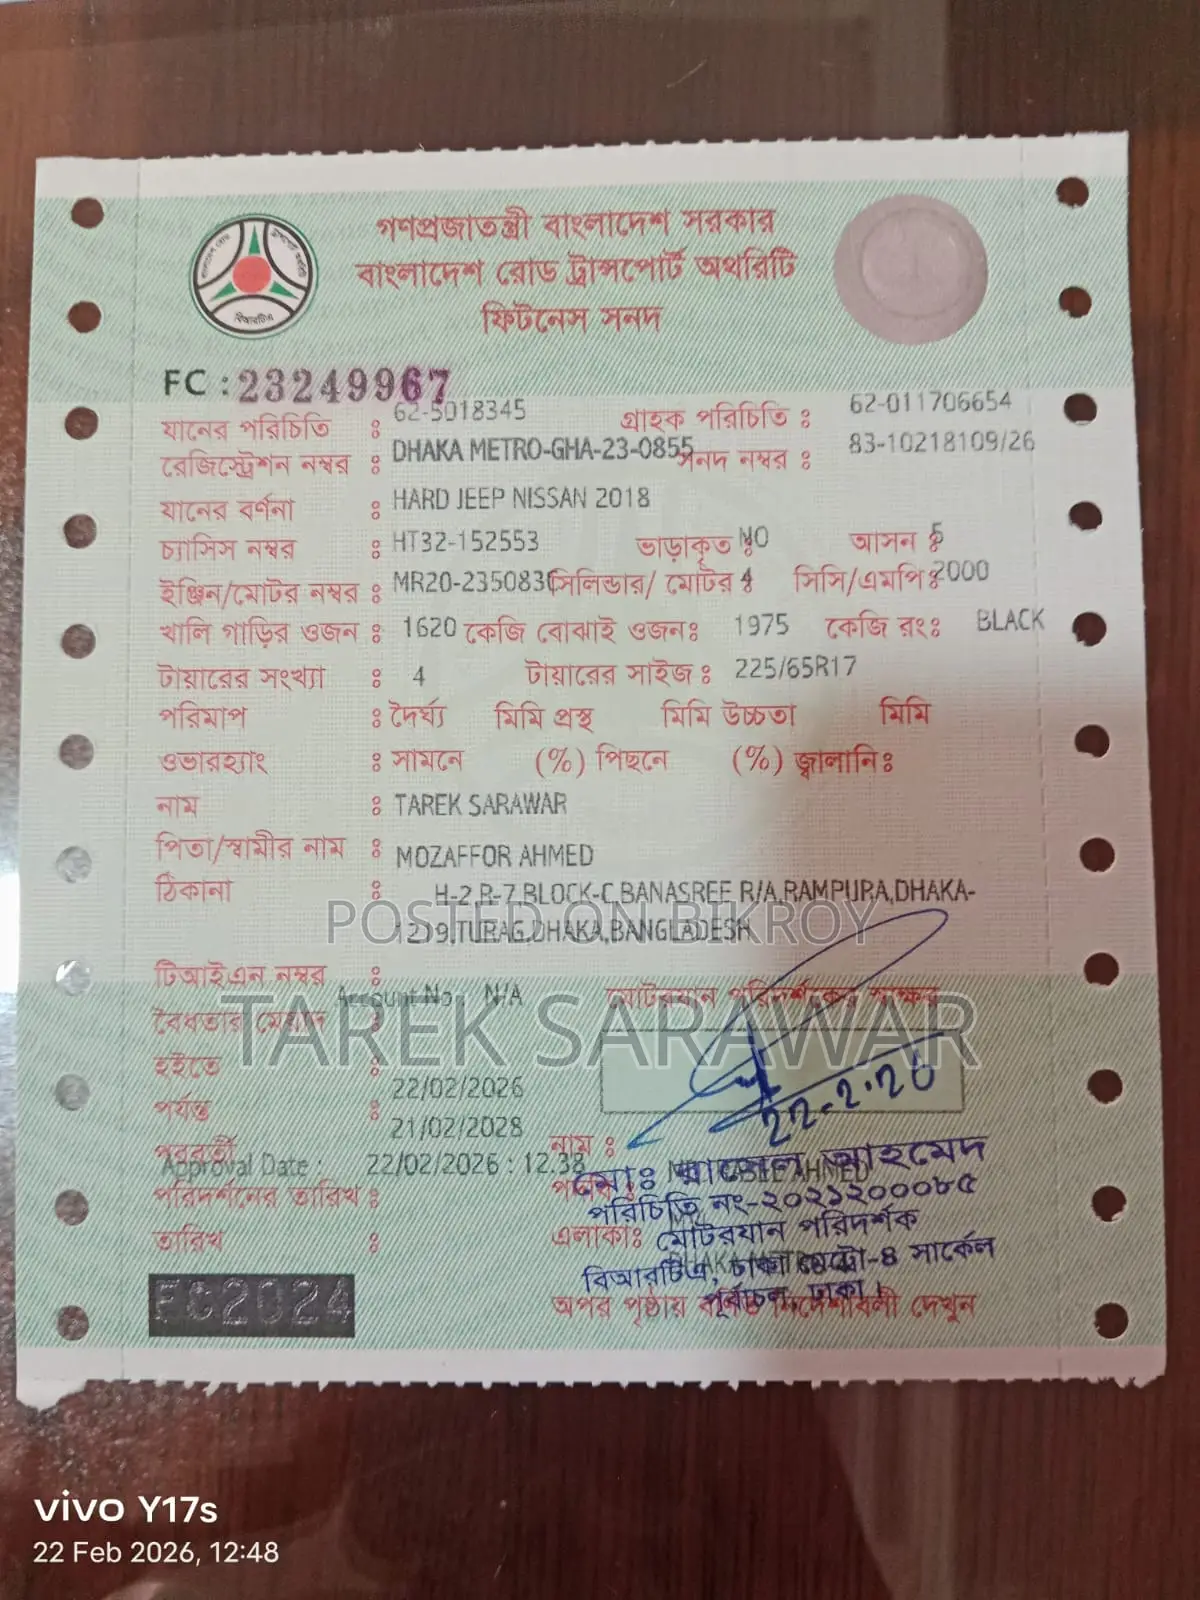 গণপ্রজাতন্ত্রী বাংলাদেশ সরকার
বাংলাদেশ রোড ট্রান্সপোর্ট অথরিটি
ফিটনেস সনদ
বিআরটিএ
FC : 23249967
যানের পরিচিতি : 62-5018345 গ্রাহক পরিচিতি : 62-011706654
রেজিস্ট্রেশন নম্বর : DHAKA METRO-GHA-23-0855 সনদ নম্বর : 83-10218109/26
যানের বর্ণনা : HARD JEEP NISSAN 2018
চ্যাসিস নম্বর : HT32-152553 ভাড়াকৃত : NO আসন : 5
ইঞ্জিন/মোটর নম্বর : MR20-235083 সিলিন্ডার/ মোটর : 4 সিসি/এমপি : 2000
খালি গাড়ির ওজন : 1620 কেজি বোঝাই ওজন : 1975 কেজি রং : BLACK
টায়ারের সংখ্যা : 4 টায়ারের সাইজ : 225/65R17
পরিমাপ : দৈর্ঘ্য মিমি প্রস্থ মিমি উচ্চতা মিমি
ওভারহ্যাং : সামনে (%) পিছনে (%) জ্বালানি :
নাম : TAREK SARAWAR
পিতা/স্বামীর নাম : MOZAFFOR AHMED
ঠিকানা : H-2,R-7,BLOCK-C,BANASREE R/A,RAMPURA,DHAKA-
1219,TURAG,DHAKA,BANGLADESH
POSTED ON BIKROY
টিআইএন নম্বর :
Account No N/A মোটরযান পরিদর্শকের স্বাক্ষর
TAREK SARAWAR
বৈধতার মেয়াদ :
হইতে : 22/02/2026
পর্যন্ত : 21/02/2028
22-2-26
পরবর্তী
Approval Date : 22/02/2026 : 12.38 নাম :
মোঃ রাসেল আহমেদ
পরিদর্শনের তারিখ :
পরিচিতি নং-২০২১২০০০৮৫
তারিখ : এলাকা: মোটরযান পরিদর্শক
বিআরটিএ, ঢাকা মেট্রো-৪ সার্কেল
পূর্বাচল, ঢাকা।
FC2024
অপর পৃষ্ঠায় বর্ণিত নির্দেশাবলী দেখুন
vivo Y17s
22 Feb 2026, 12:48